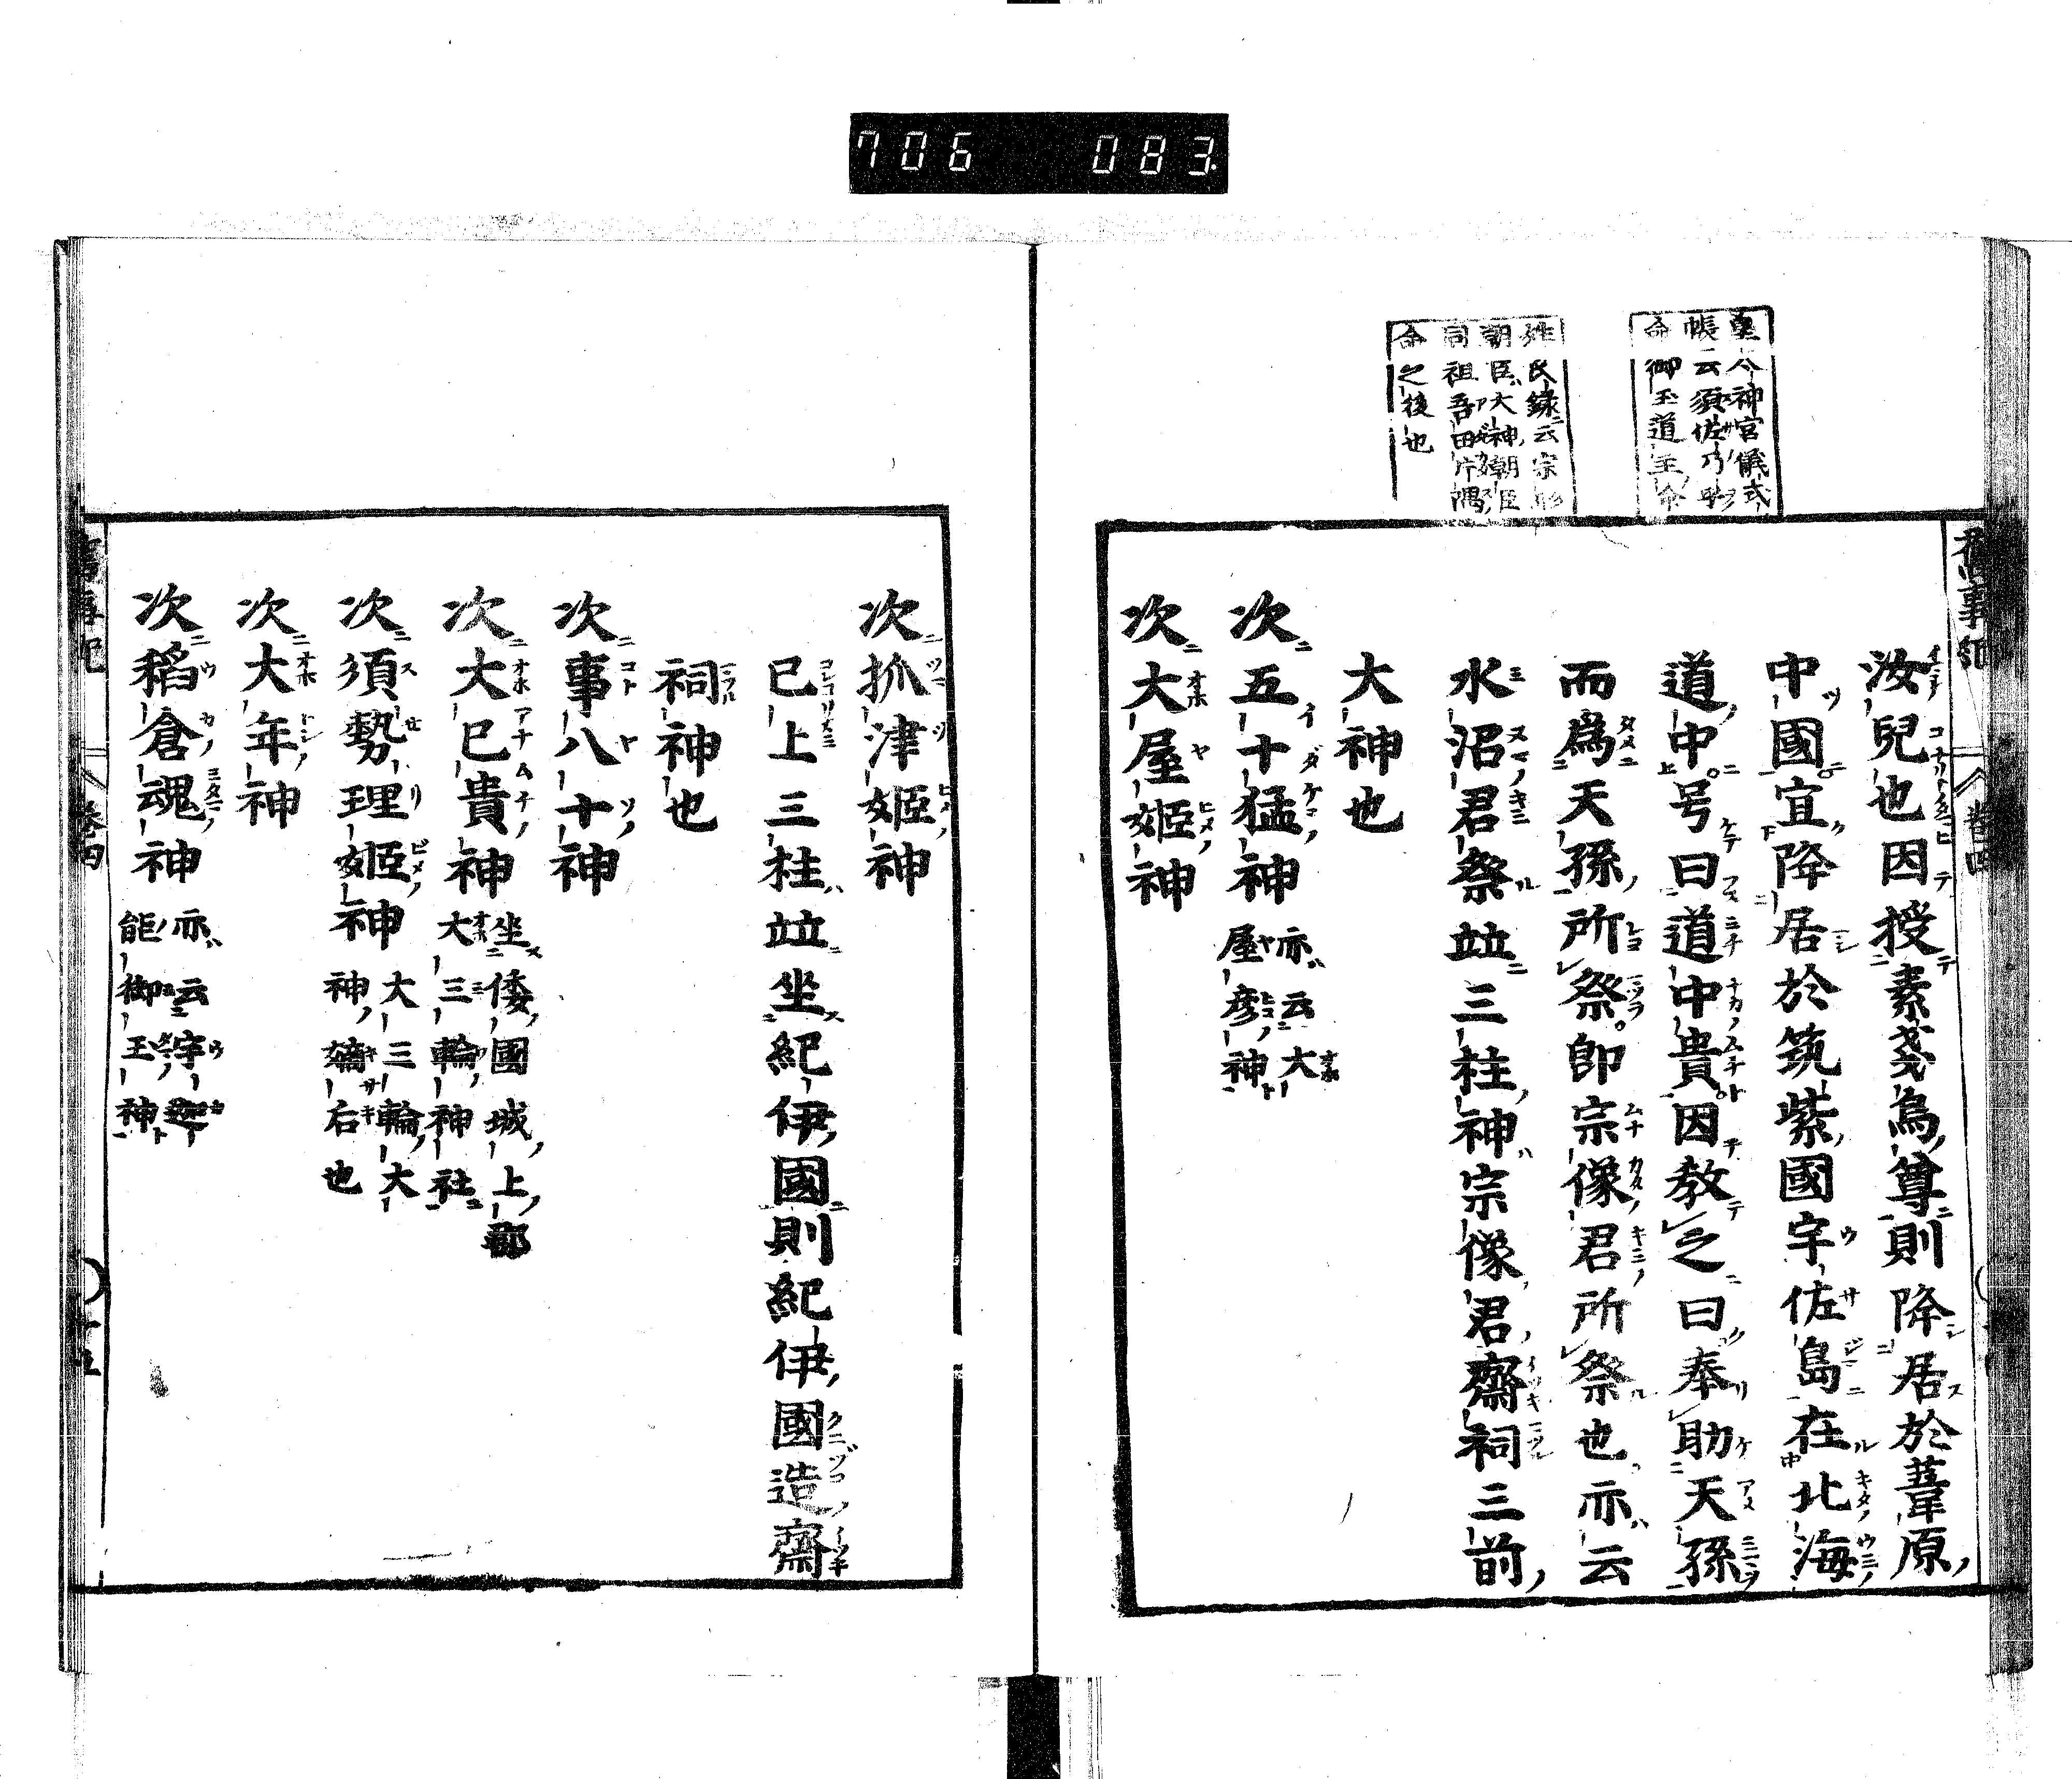 706 083
皇太神宮儀式
帳云須佐乃乎
命御玉道主命
姓氏録云宗形
朝臣大神朝臣
同祖吾田片隅
命之後也
汝兒也因授素戔烏尊則降居於葦原
中國宜降居於筑紫國宇佐島在北海
道中号曰道中貴因教之曰奉助天孫
而爲天孫所祭即宗像君所祭也亦云
水沼君祭竝三柱神宗像君齋祠三前
大神也
次五十猛神 亦云大
屋彦神
次大屋姫神
次抓津姫神
已上三柱竝坐紀伊國則紀伊國造齋
祠神也
次事八十神
次大已貴神 坐倭國城上郡
大三輪神社
次須勢理姫神 大三輪大
神嫡后也
次大年神
次稻倉魂神 亦云宇迦
能御玉神